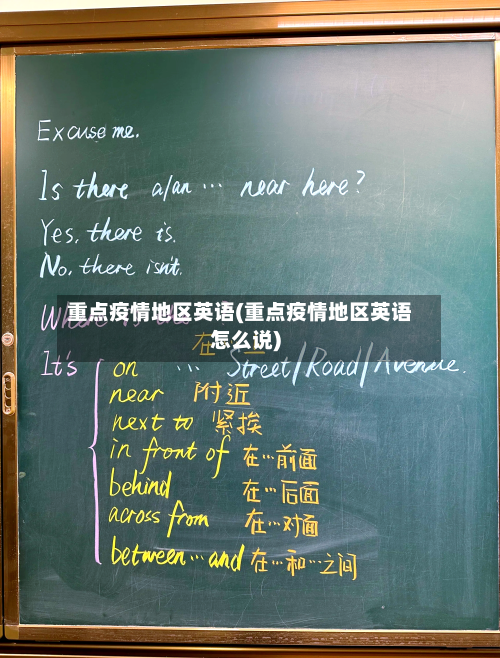 Excuse me.
Is there a/an ... near here?
Yes, there is.
No, there isn't.
重点疫情地区英语(重点疫情地区英语
怎么说)
It's on ... Street/Road/Avenue.
near 附近
next to 紧挨
in front of 在...前面
behind 在...后面
across from 在...对面
between ... and 在...和...之间